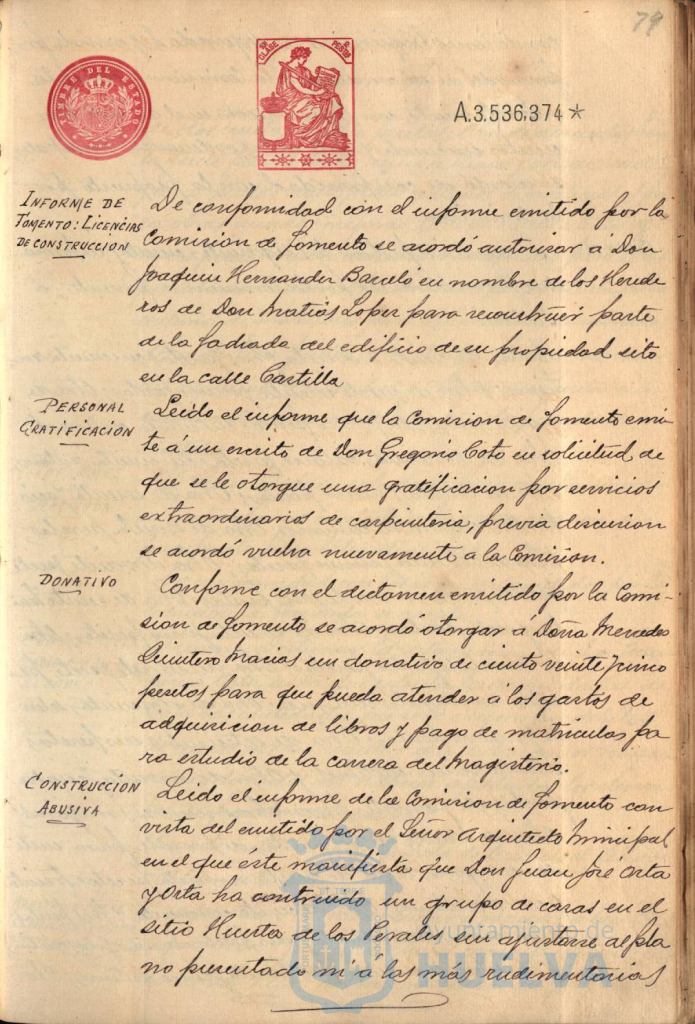 79
TIMBRE DEL ESTADO
8ª CLASE
PESTAS
A.3.536,374*
INFORME DE
FOMENTO: LICENCIAS
DE CONSTRUCCION
De conformidad con el informe emitido por la
Comision de Fomento se acordó autorizar á Don
Joaquin Hernandez Barceló en nombre de los Herede
ros de Don Matías Lopez para reconstruir parte
de la fachada del edificio de su propiedad sito
en la calle Castilla
PERSONAL
GRATIFICACION
Leido el informe que la Comision de Fomento emi-
te á un escrito de Don Gregorio Coto en solicitud de
que se le otorgue una gratificacion por servicios
extraordinarios de carpinteria, previa discusion
se acordó vuelva nuevamente a la Comision.
DONATIVO
Conforme con el dictamen emitido por la Comi-
sion de Fomento se acordó otorgar á Doña Mercedes
Quintero Macias un donativo de ciento veinte y cinco
pesetas para que pueda atender á los gastos de
adquisicion de libros y pago de matriculas pa
ra estudio de la carrera del Magisterio.
CONSTRUCCION
ABUSIVA
Leido el informe de la Comision de Fomento con
vista del emitido por el Señor Arquitecto Municipal
en el que éste manifiesta que Don Juan José Orta
y Orta ha contruido un grupo de casas en el
sitio Huerta de los Perales sin ajustarse al pla
no presentado ni á las más rudimentarias
Ayuntamiento de
HUELVA